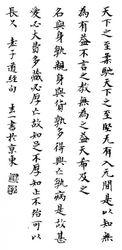 天下之至柔馳騁天下之至堅无有入无間是以知無
為有益不言之教無為之益天下希及之
名與身孰親身與貨孰多得與亡孰病是故甚
愛必大費多藏必厚亡故知足不辱知止不殆可以
長久 老子道經句 書於京東